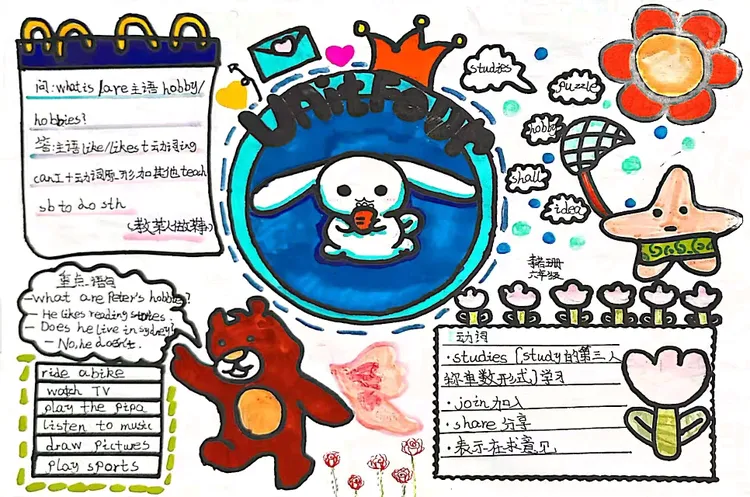 unit Four
问: what is /are 主语 hobby/
hobbies?
答:主语 like/likes + 动词ing
can I + 动词原形加其他 teach
sb to do sth
(教某人做某事)
studies
puzzle
hobby
shall
idea
六年级
重点语句
-What are Peter's hobbies?
- He likes reading stories.
- Does he live in sydney?
- No, he doesn't.
ride a bike
watch TV
play the pipa
listen to music
draw pictures
play sports
动词
·studies [study的第三人
称单数形式]学习
·join 加入
·share 分享
·表示在求意见